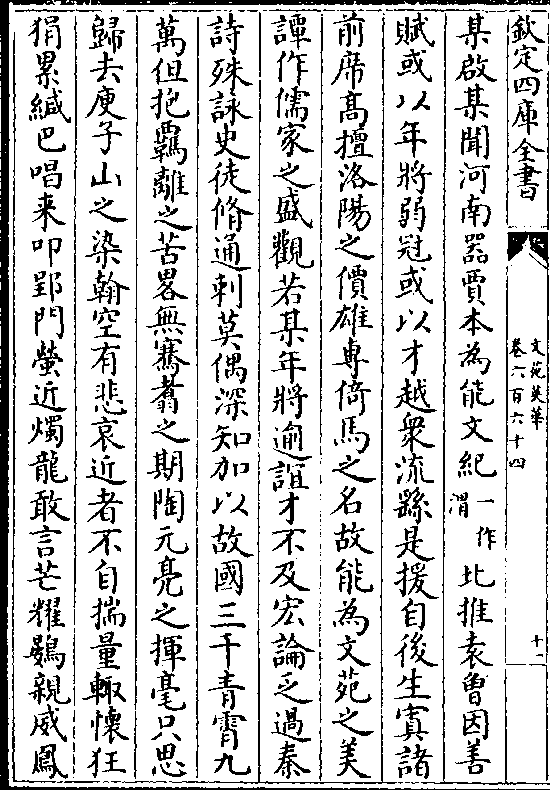 欽定四庫全書
文苑英華
卷六百六十四
十二
某啟某聞河南器賈本為能文紀一作渭北推袁魯因善
賦或以年將弱冠或以才越衆流繇是援自後生寘諸
前席高擅洛陽之價雄專倚馬之名故能為文苑之美
譚作儒家之盛觀若某年將逾誼才不及宏論乏過秦
詩殊詠史徒脩通刺莫偶深知加以故國三千青霄九
萬但抱覊離之苦畧無騫翥之期陶元亮之揮毫只思
歸去庾子山之染翰空有悲哀近者不自揣量輙懷狂
狷累緘巴唱来叩郢門螢近燭龍敢言芒耀鷃親威鳳